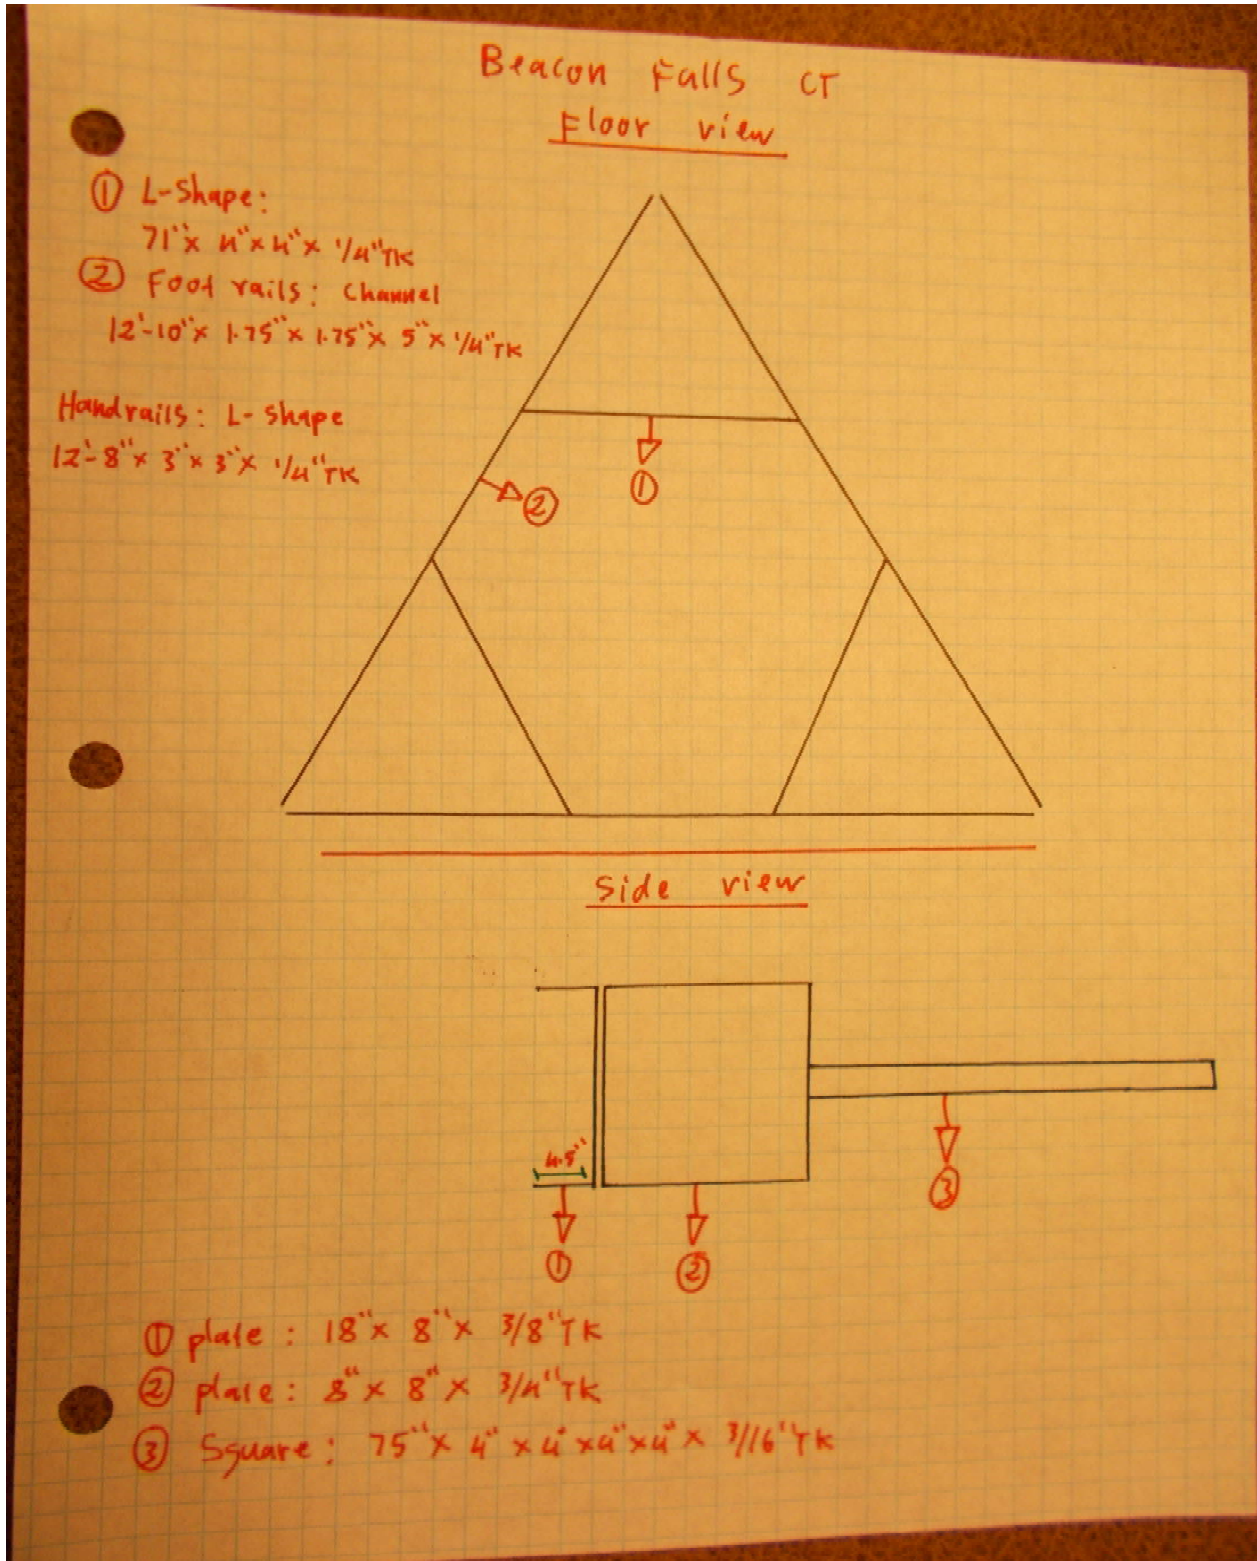 Beacon Falls CT
Floor view
① L-Shape:
71"x 4"x 4"x 1/4"TK
② Foot rails: Channel
12'-10"x 1.75"x 1.75"x 5"x 1/4"TK
Handrails: L-shape
12'-8"x 3"x 3"x 1/4"TK
①
②
Side view
4.5"
③
① ②
① plate: 18"x 8"x 3/8"TK
② plate: 8"x 8"x 3/4"TK
③ Square: 75"x 4"x4"x4"x4"x 3/16"TK